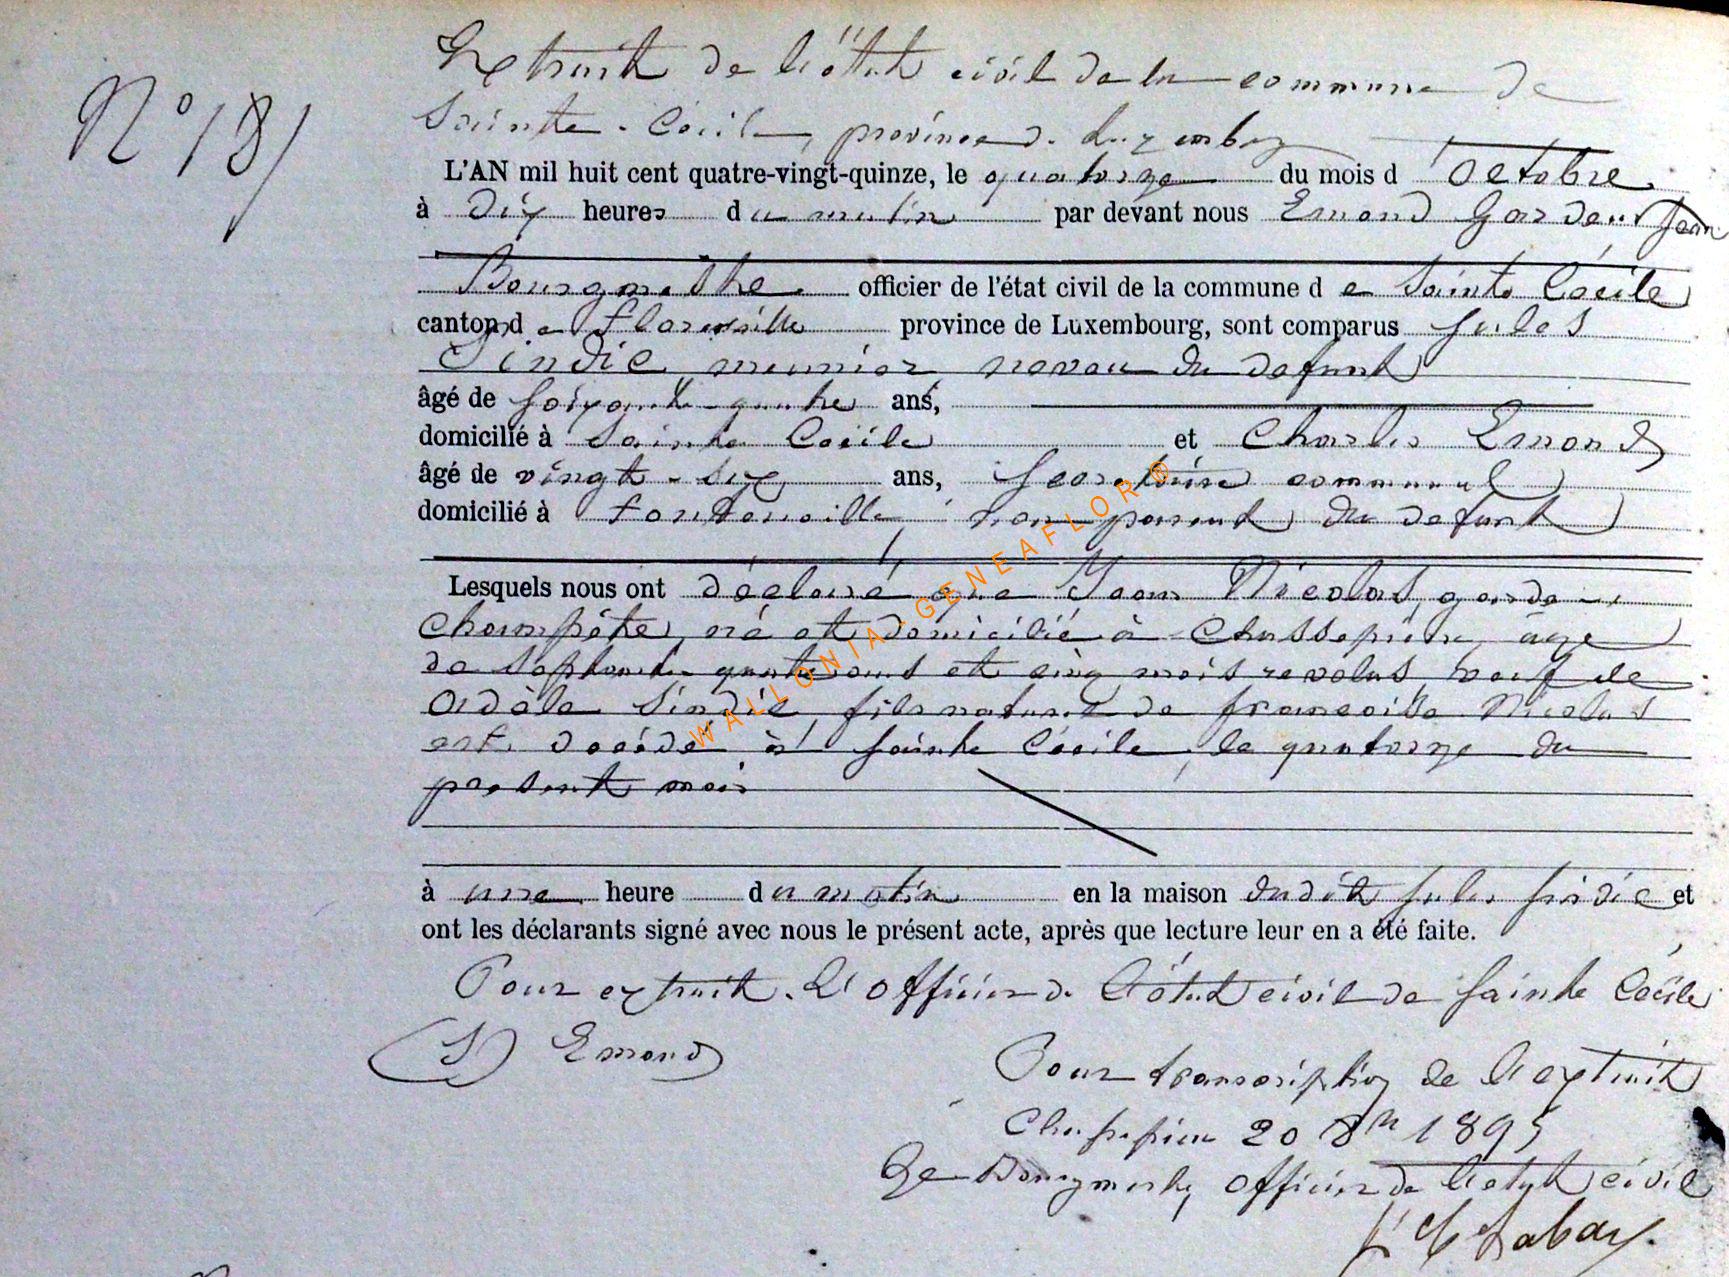 N° 181
Extrait de l'état civil de la commune de
Sainte-Cécile, province d. Luxembourg
L'AN mil huit cent quatre-vingt-quinze, le quatorze du mois d'Octobre
à Dix heures du matin par devant nous Emond Jean
Bourgmestre officier de l'état civil de la commune de Sainte Cécile
canton de Florenville province de Luxembourg, sont comparus Jules
Sindic meunier neveu du defunt
âgé de soixante-quatre ans,
domicilié à Sainte Cécile et Charles Emond
âgé de vingt-six ans, Secretaire communal
domicilié à Fontenoille, non parent du defunt
Lesquels nous ont déclaré que Nicolas, garde-
champêtre, né et domicilié à Chassepierre âgé
de septante quatre ans et cinq mois revolus, veuf de
Adèle Sindic, fils naturel de francoise Nicolas
est décédé à Sainte Cécile, le quatorze du
present mois
à une heure du matin en la maison dudit Jules Sindic et
ont les déclarants signé avec nous le présent acte, après que lecture leur en a été faite.
Pour extrait. L'Officier de l'état civil de Sainte Cécile
(S) Emond
Pour transcription de l'extrait
Chassepierre 20 8re 1895
Le Bourgmestre, Officier de l'etat civil
WALLONIA-GENEAFLOR®